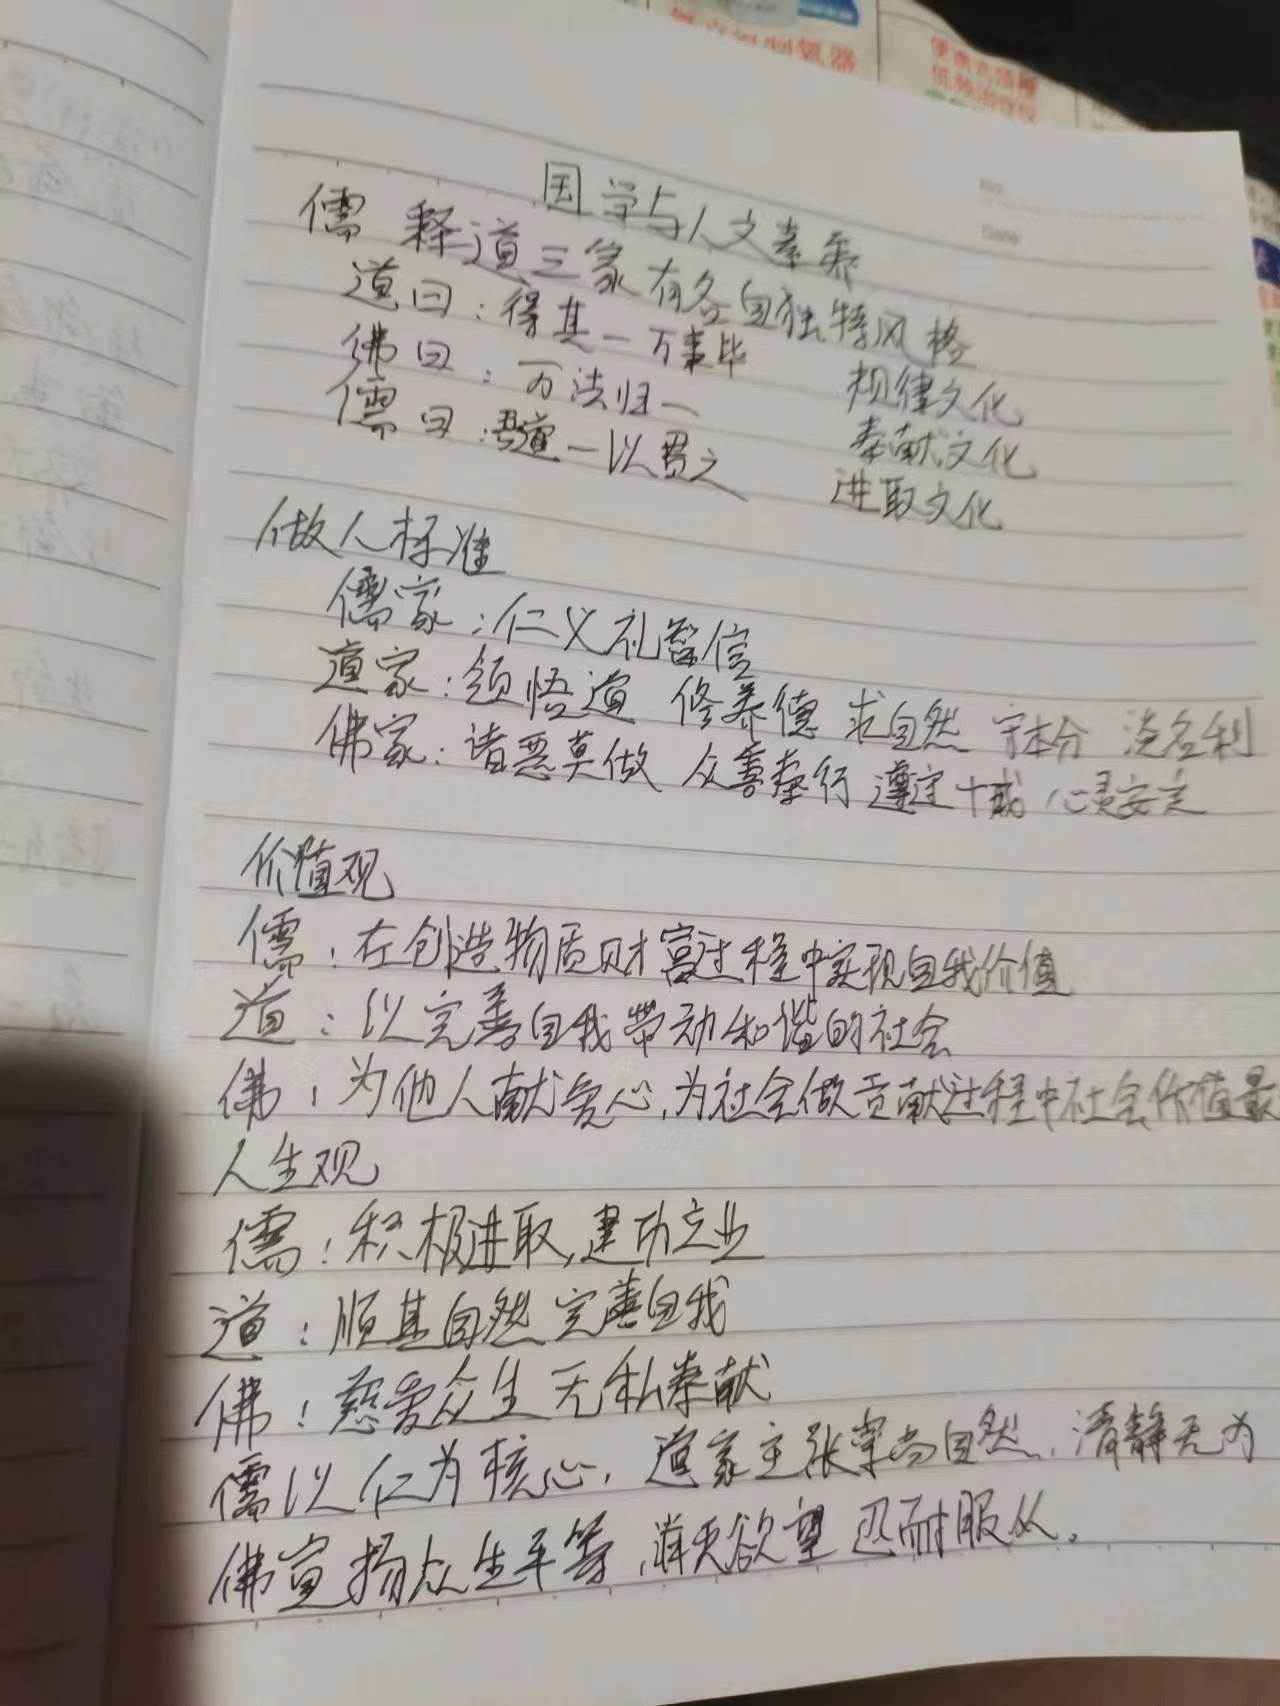 制氧器
国学与人文素养
儒 释道三家有各自独特风格
道曰：得其一万事毕 规律文化
佛曰：万法归一 奉献文化
儒曰：吾道一以贯之 进取文化
做人标准
儒家：仁义礼智信
道家：领悟道 修养德 求自然 守本分 淡名利
佛家：诸恶莫做 众善奉行 遵守十戒 心灵安定
价值观
儒：在创造物质财富过程中实现自我价值
道：以完善自我带动和谐的社会
佛：为他人献爱心，为社会做贡献过程中社会价值最
人生观
儒：积极进取，建功立业
道：顺其自然 完善自我
佛：慈爱众生 无私奉献
儒以仁为核心，道家主张崇尚自然，清静无为
佛宣扬众生平等，消灭欲望 忍耐服从。
No.
Date